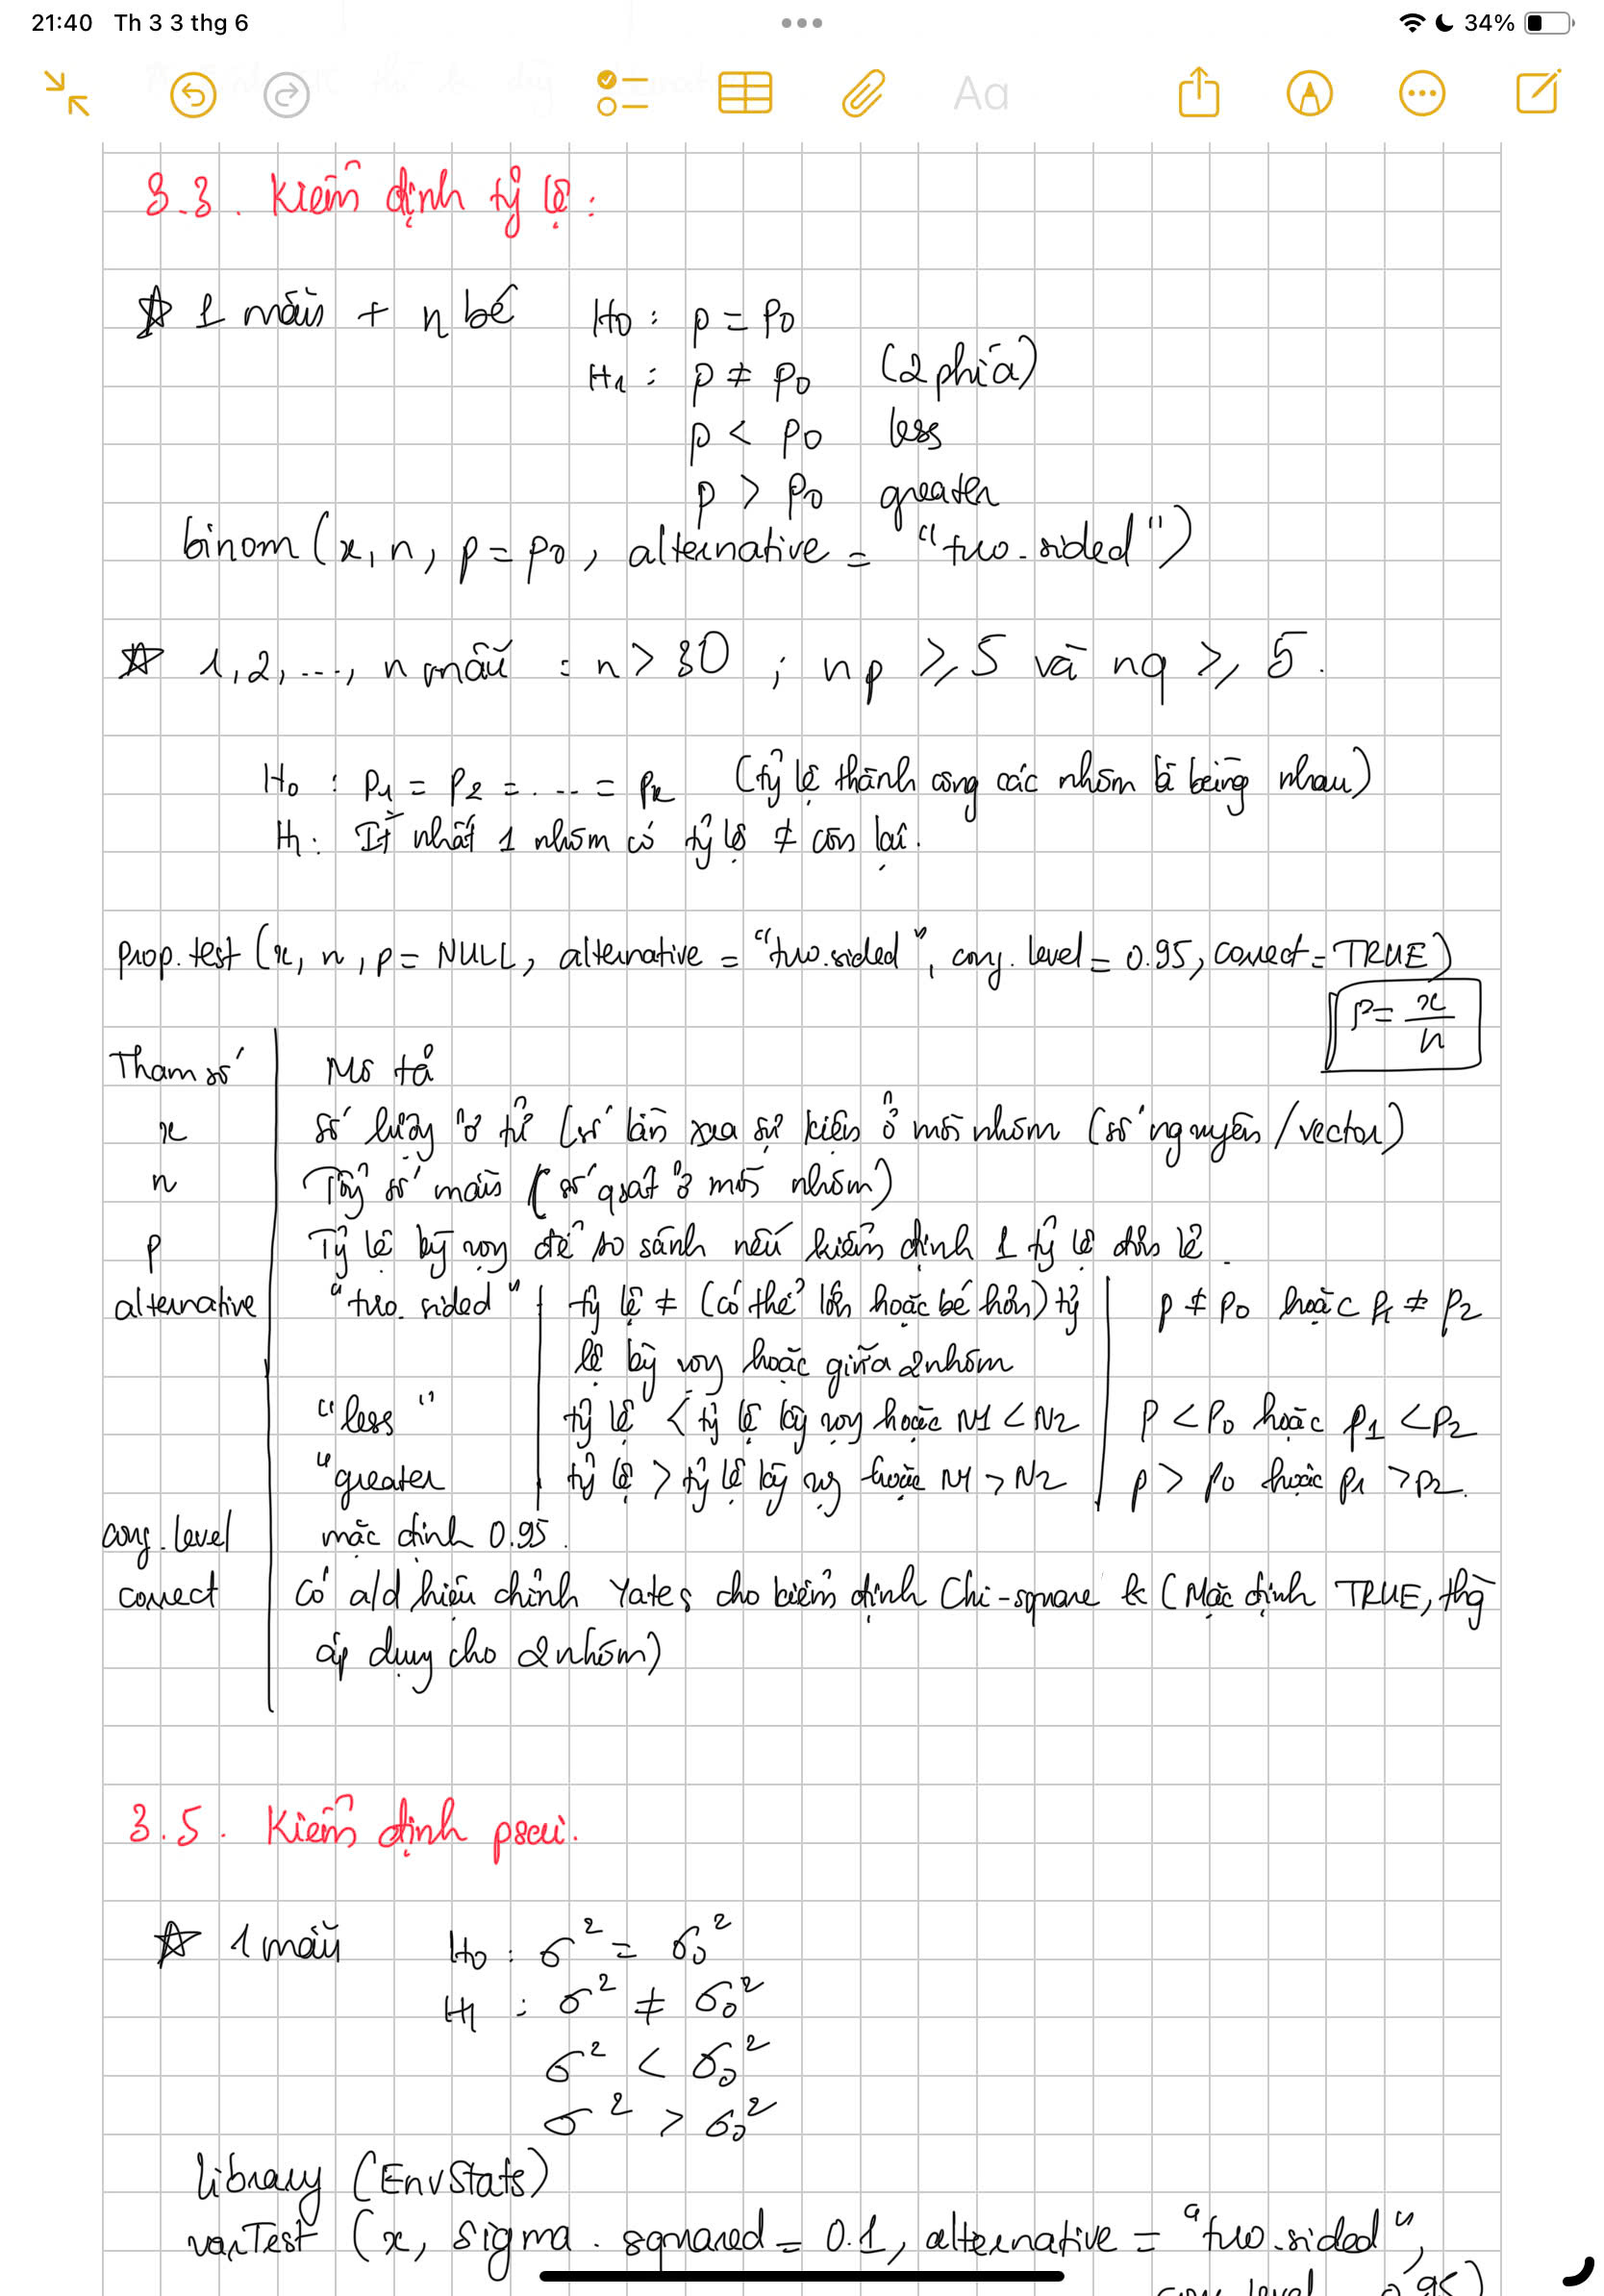 21:40 Th 3 3 thg 6 34%
Aa
3.3. Kiểm định tỷ lệ:
☆ 1 mẫu + n bé H0 : p = p0
H1 : p ≠ p0 (2 phía)
p < p0 less
p > p0 greater
binom (x, n, p = p0, alternative = "two.sided")
☆ 1,2, ..., n mẫu : n > 30 ; np ≥ 5 và nq ≥ 5.
H0 : p1 = p2 = ... = pk (tỷ lệ thành công các nhóm là bằng nhau)
H1: Ít nhất 1 nhóm có tỷ lệ ≠ còn lại.
prop.test (x, n, p = NULL, alternative = "two.sided", conf.level = 0.95, correct = TRUE)
p = x/n
Tham số Mô tả
x số lượng ở tử (số lần xra sự kiện ở mỗi nhóm (số nguyên/vector)
n Tổng số mẫu (số qsát ở mỗi nhóm)
p Tỷ lệ kỳ vọng để so sánh nếu kiểm định 1 tỷ lệ đơn lẻ.
alternative "two.sided" tỷ lệ ≠ (có thể lớn hoặc bé hơn) tỷ p ≠ p0 hoặc p1 ≠ p2
lệ kỳ vọng hoặc giữa 2 nhóm
"less" tỷ lệ < tỷ lệ kỳ vọng hoặc N1 < N2 p < p0 hoặc p1 < p2
"greater tỷ lệ > tỷ lệ kỳ vọng hoặc N1 > N2 p > p0 hoặc p1 > p2.
conf.level mặc định 0.95.
correct có a/d hiệu chỉnh Yates cho kiểm định Chi-square k (Mặc định TRUE, thg
áp dụng cho 2 nhóm)
3.5. Kiểm định psai.
☆ 1 mẫu H0 : σ² = σ0²
H1 : σ² ≠ σ0²
σ² < σ0²
σ² > σ0²
library (EnvStats)
varTest (x, sigma.squared = 0.1, alternative = "two.sided",
conf.level 0.95)